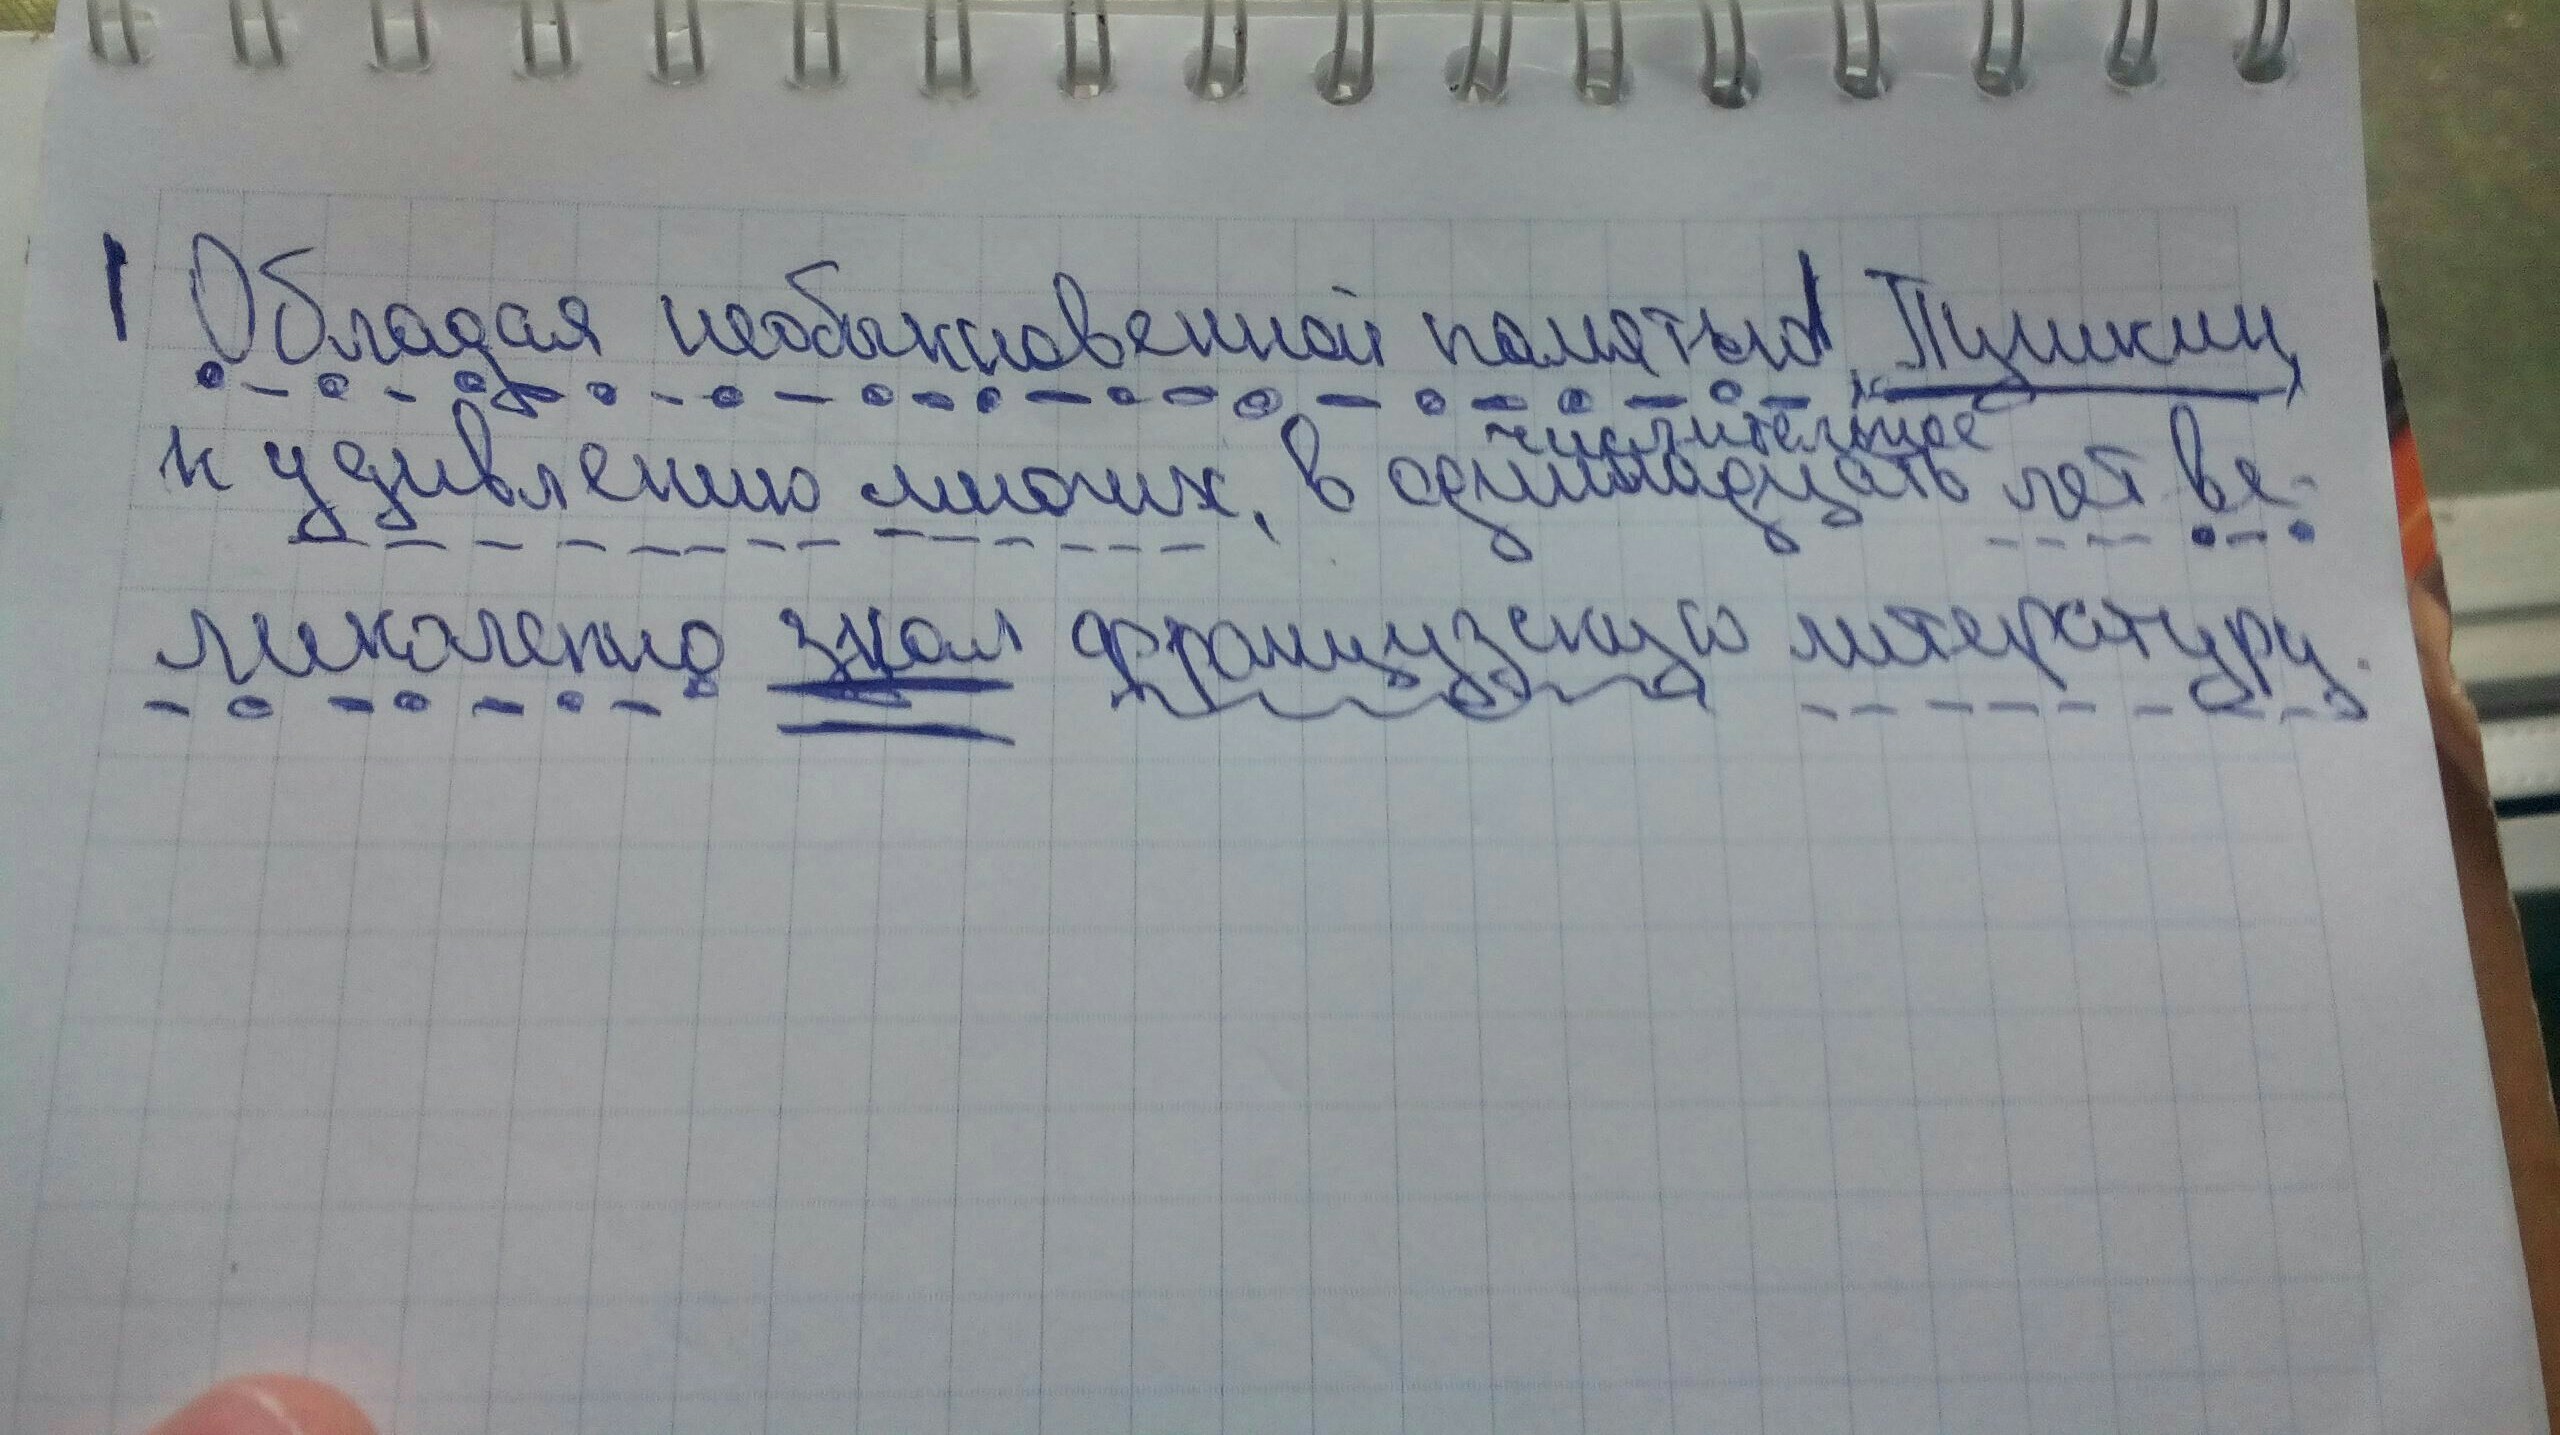 Обладая необыкновенной памятью, Пушкин,
числительное
к удивлению многих, в одиннадцать лет ве-
ликолепно знал французскую литературу.